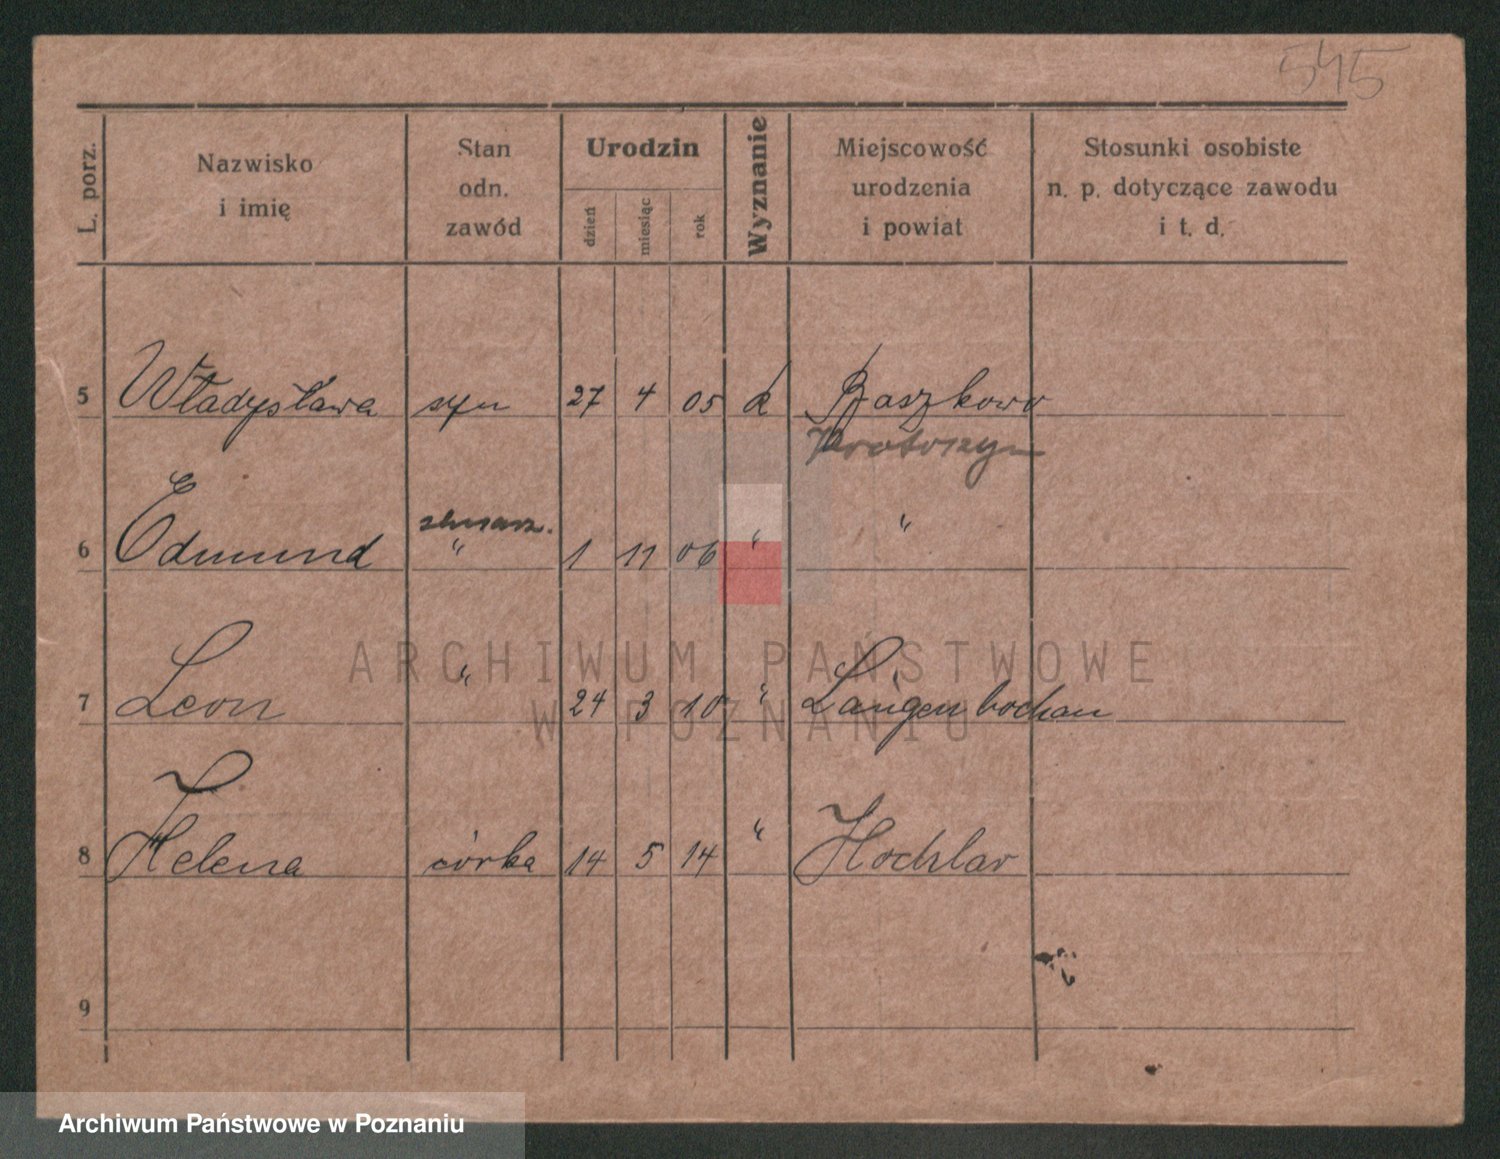 545
L. porz. Nazwisko i imię Stan odn. zawód Urodzin dzień miesiąc rok Wyznanie Miejscowość urodzenia i powiat Stosunki osobiste n. p. dotyczące zawodu i t. d.
5 Władysława syn 27 4 05 k Baszkowo
Krotoszyn
6 Edmund " 1 11 06 " "
7 Leon " 24 3 10 " Langenbochau
8 Helena córka 14 5 14 " Hochlar
9
ARCHIWUM PAŃSTWOWE
W POZNANIU
Archiwum Państwowe w Poznaniu